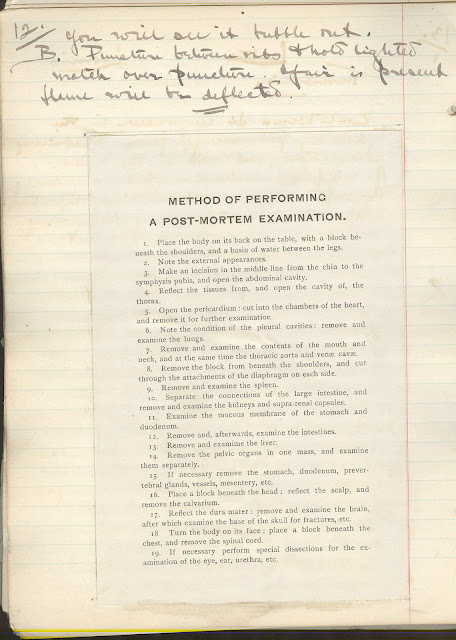 12. you will see it bubble out.
B. Puncture between ribs & hold lighted
match over puncture. If air is present
flame will be deflected.
METHOD OF PERFORMING
A POST-MORTEM EXAMINATION.
1. Place the body on its back on the table, with a block be-
neath the shoulders, and a basin of water between the legs.
2. Note the external appearances.
3. Make an incision in the middle line from the chin to the
symphysis pubis, and open the abdominal cavity.
4. Reflect the tissues from, and open the cavity of, the
thorax.
5. Open the pericardium : cut into the chambers of the heart,
and remove it for further examination
6. Note the condition of the pleural cavities : remove and
examine the lungs.
7. Remove and examine the contents of the mouth and
neck, and at the same time the thoracic aorta and venæ cavæ.
8. Remove the block from beneath the shoulders, and cut
through the attachments of the diaphragm on each side.
9. Remove and examine the spleen.
10. Separate the connections of the large intestine, and
remove and examine the kidneys and supra-renal capsules.
11. Examine the mucous membrane of the stomach and
duodenum.
12. Remove and, afterwards, examine the intestines.
13. Remove and examine the liver.
14. Remove the pelvic organs in one mass, and examine
them separately.
15. If necessary remove the stomach, duodenum, prever-
tebral glands, vessels, mesentery, etc.
16. Place a block beneath the head : reflect the scalp, and
remove the calvarium.
17. Reflect the dura mater : remove and examine the brain,
after which examine the base of the skull for fractures, etc.
18 Turn the body on its face : place a block beneath the
chest, and remove the spinal cord.
19. If necessary perform special dissections for the ex-
amination of the eye, ear, urethra, etc.